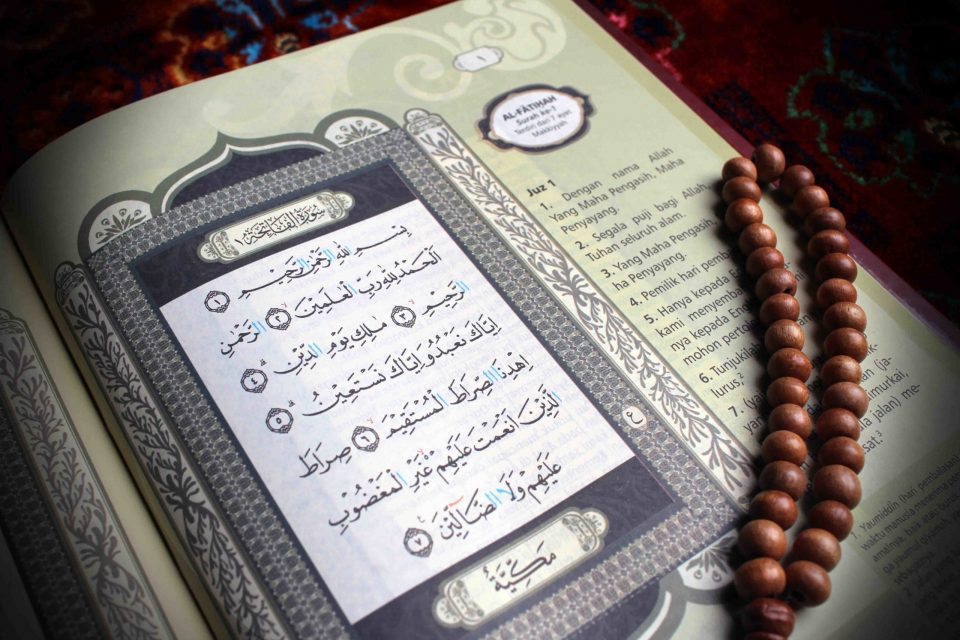 ١
AL-FĀTIḤAH
Surah ke-1
Terdiri dari 7 ayat
Makkiyyah
سُوْرَةُ الْفَاتِحَةِ ١
بِسْمِ اللّٰهِ الرَّحْمٰنِ الرَّحِيْمِ ١
اَلْحَمْدُ لِلّٰهِ رَبِّ الْعٰلَمِيْنَ ٢ الرَّحْمٰنِ
الرَّحِيْمِ ٣ مٰلِكِ يَوْمِ الدِّيْنِ ٤
اِيَّاكَ نَعْبُدُ وَاِيَّاكَ نَسْتَعِيْنُ ٥
اِهْدِنَا الصِّرَاطَ الْمُسْتَقِيْمَ ٦ صِرَاطَ
الَّذِيْنَ اَنْعَمْتَ عَلَيْهِمْ غَيْرِ الْمَغْضُوْبِ
عَلَيْهِمْ وَلَا الضَّاۤلِّيْنَ ٧
مَكِّيَّة
ع
Juz 1
1. Dengan nama Allah
Yang Maha Pengasih, Maha
Penyayang.
2. Segala puji bagi Allah,
Tuhan seluruh alam.
3. Yang Maha Pengasih
ha Penyayang.
4. Pemilik hari
5. Hanya kepada
kami
nya kepada
mohon
6.
lurus;
7. (ya
jalan) me-
1. Yaumiddīn (hari
waktu manusia menerima